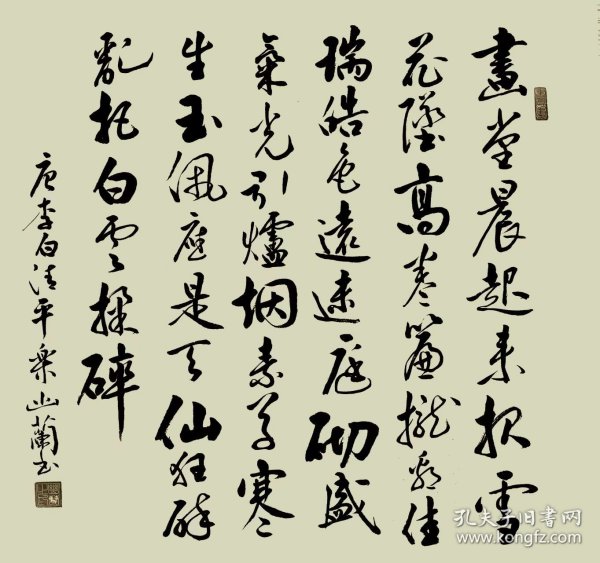 畫堂晨起来报雪
花墜高卷簾攏看佳
瑞皓色遠迷庭砌盛
氣光引爐烟素草寒
生玉佩應是天仙狂醉
亂把白雲揉碎
唐李白清平樂 蘭书
孔夫子旧书网
www.kongfz.com